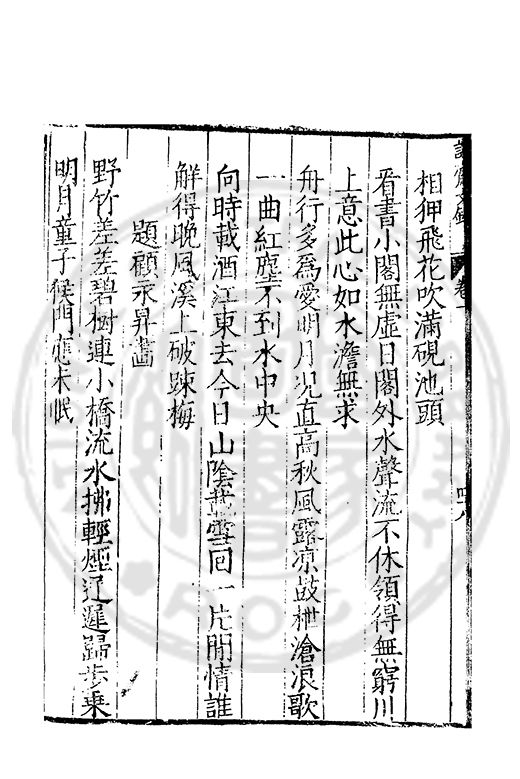 卷一
四八
相狎飛花吹滿硯池頭
看書小閣無虛日閣外水聲流不休領得無窮川
上意此心如水澹無求
舟行多爲愛明月况直高秋風露凉鼓枻滄浪歌
一曲紅塵不到水中央
向時載酒江東去今日山陰載雪回一片閒情誰
解得晚風溪上破踈梅
題顧永昇畵
野竹差差碧樹連小橋流水拂輕煙迂遲歸步乘
明月童子候門應未眠